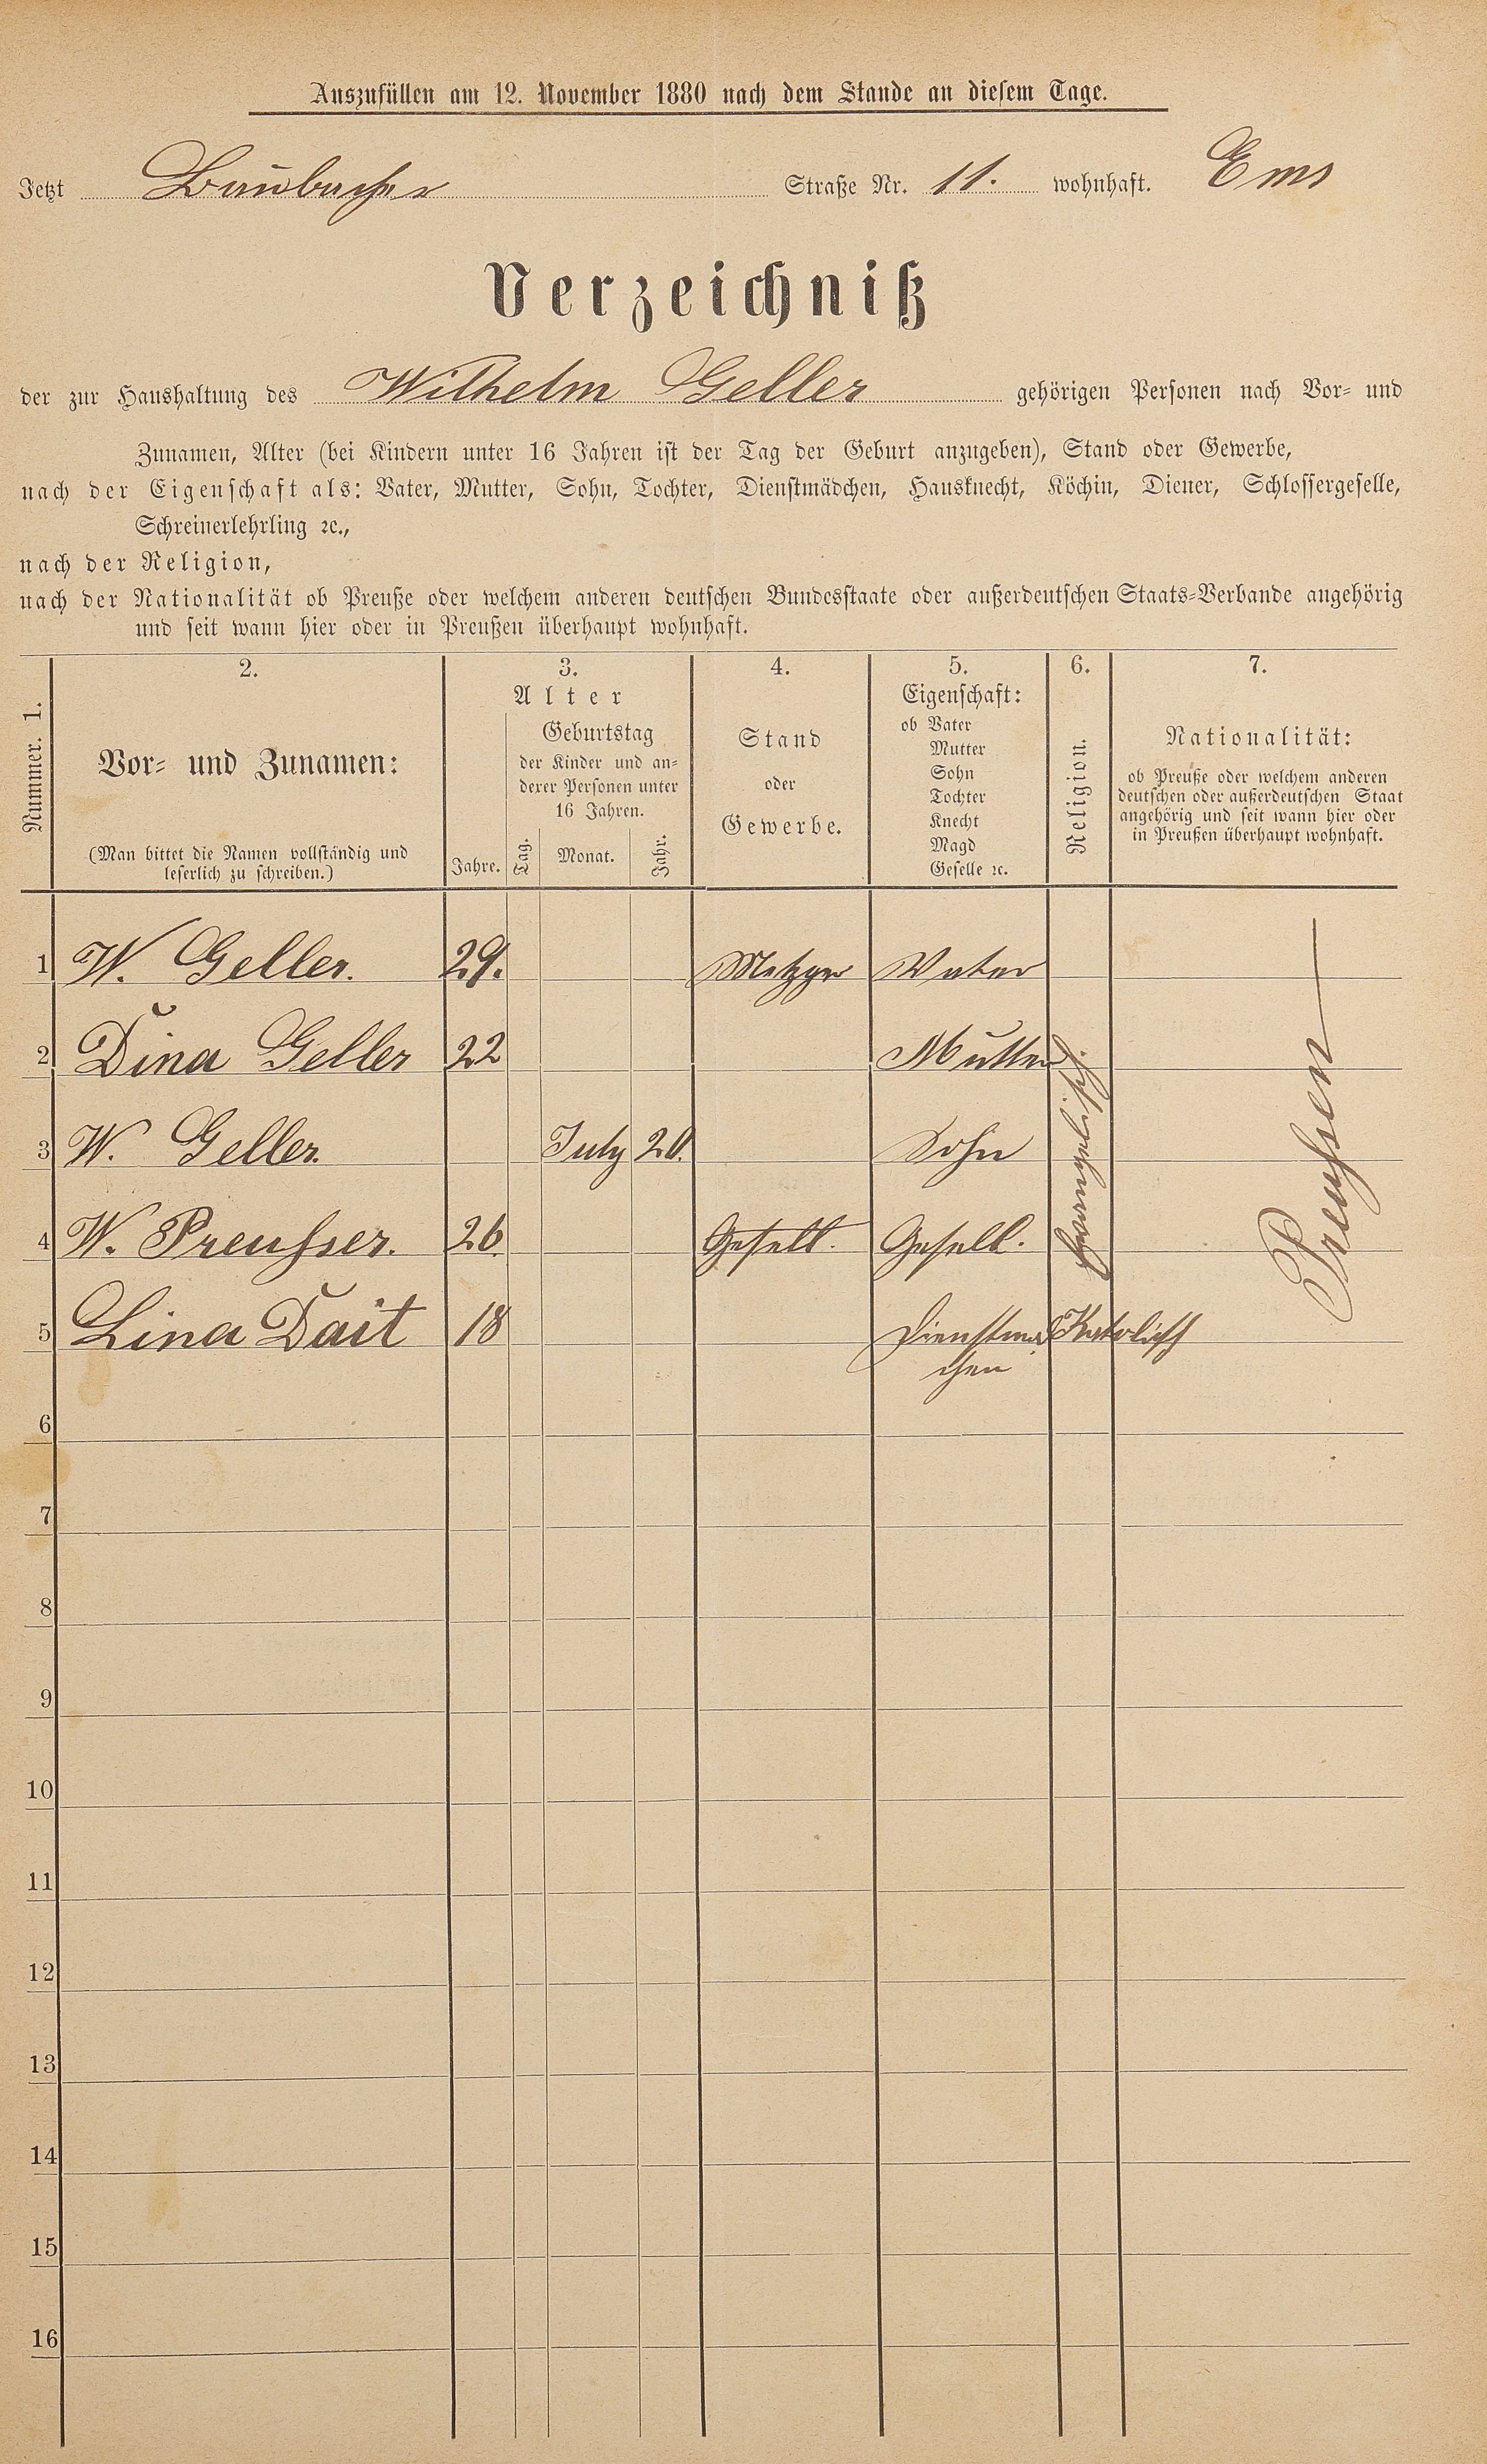 Auszufüllen am 12. November 1880 nach dem Stande an diesem Tage.
Jetzt Baubacher Straße Nr. 11. wohnhaft. Ems
Verzeichniß
der zur Haushaltung des Wilhelm Geller gehörigen Personen nach Vor- und
Zunamen, Alter (bei Kindern unter 16 Jahren ist der Tag der Geburt anzugeben), Stand oder Gewerbe,
nach der Eigenschaft als: Vater, Mutter, Sohn, Tochter, Dienstmädchen, Hausknecht, Köchin, Diener, Schlossergeselle,
Schreinerlehrling ꝛc.,
nach der Religion,
nach der Nationalität ob Preuße oder welchem anderen deutschen Bundesstaate oder außerdeutschen Staats-Verbande angehörig
und seit wann hier oder in Preußen überhaupt wohnhaft.
Nummer. 1.
2.
Vor- und Zunamen:
(Man bittet die Namen vollständig und
leserlich zu schreiben.)
3.
Alter
Jahre.
Geburtstag
der Kinder und an-
derer Personen unter
16 Jahren.
Tag. Monat. Jahr.
4.
Stand
oder
Gewerbe.
5.
Eigenschaft:
ob Vater
Mutter
Sohn
Tochter
Knecht
Magd
Geselle ꝛc.
6.
Religion.
7.
Nationalität:
ob Preuße oder welchem anderen
deutschen oder außerdeutschen Staat
angehörig und seit wann hier oder
in Preußen überhaupt wohnhaft.
1 W. Geller. 29. Metzger Vater
2 Dina Geller 22 Mutter
3 W. Geller. July 20. Sohn
4 W. Preusser. 26. Gesell. Gesell.
5 Lina Dait 18 Dienstmäd Katolisch
chen
Evangelisch.
Preußen
6
7
8
9
10
11
12
13
14
15
16